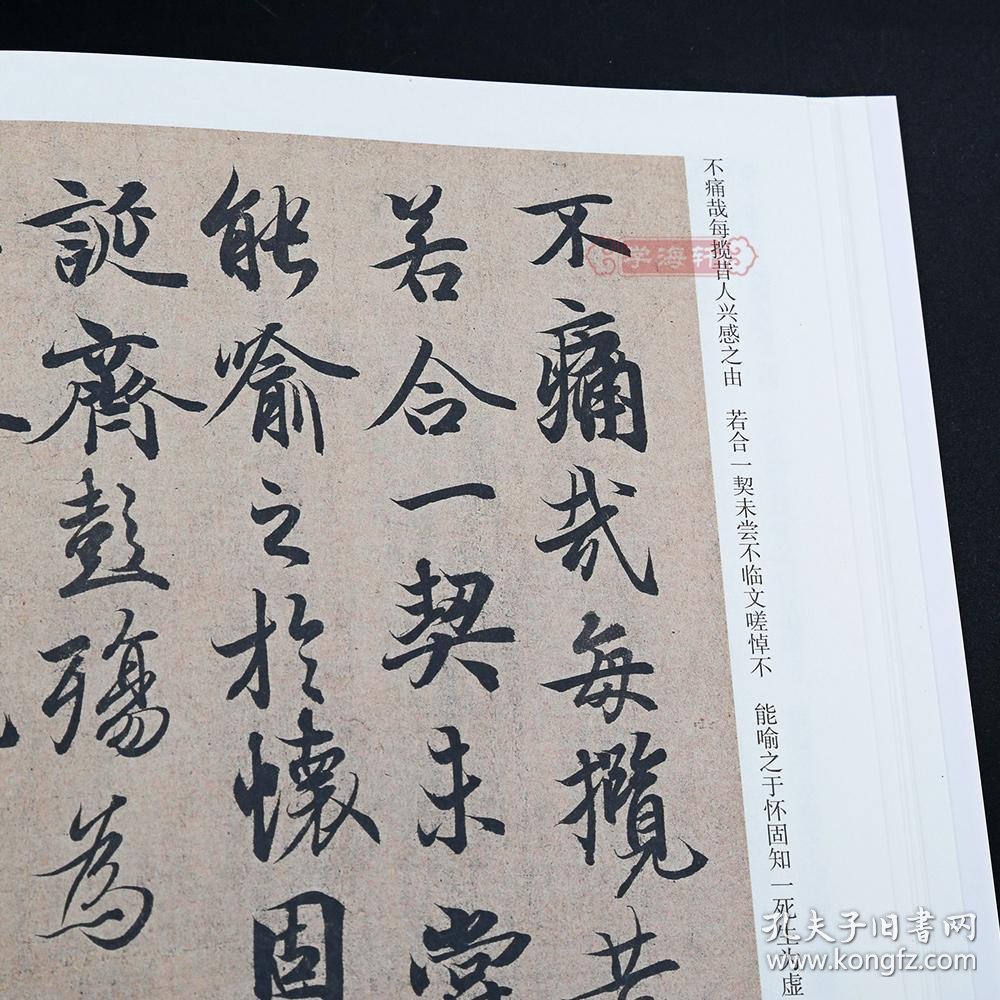 不痛哉每攬昔
若合一契未嘗
能喻之於懷固
誕齊彭殤為
不痛哉每揽昔人兴感之由 若合一契未尝不临文嗟悼不 能喻之于怀固知一死生为虚
学海轩
孔夫子旧书网
www.kongfz.com